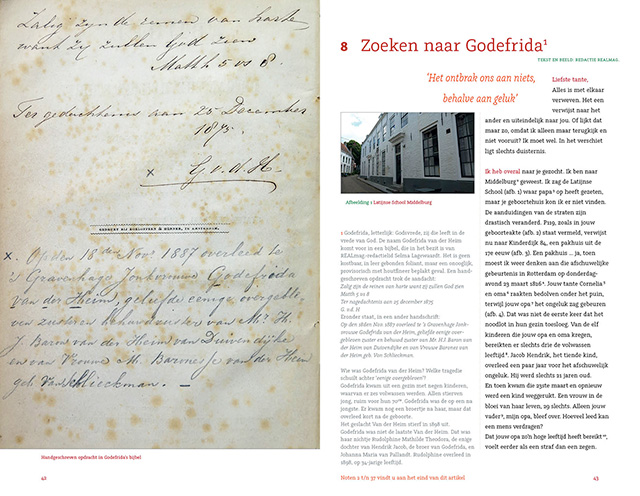 Zalig zijn de reinen van harte
want zij zullen God zien
Matth 5 vs 8.
Ter gedachtenis aan 25 December
1875.
x G. v. d. H
GEDRUKT BIJ
x. Op den 18den Novr 1887 overleed te
's Gravenhage Jonkvrouwe Godefrida
van der Heim, geliefde eenige overgeble,,
ven zuster en behuwdzuster van Mr. H.
J. Baron van der Heim van Duivendijke
en van Vrouwe M. Baronesse van der Heim
geb. Van Schlieckman. —
Handgeschreven opdracht in Godefrida's bijbel
42
8 Zoeken naar Godefrida¹
TEKST EN BEELD: REDACTIE REALMAG.
'Het ontbrak ons aan niets,
behalve aan geluk'
Afbeelding 1 Latijnse School Middelburg
1 Godefrida, letterlijk: Godsvrede, zij die leeft in de
vrede van God. De naam Godefrida van der Heim
komt voor in een bijbel, die in het bezit is van
REALmag-redactielid Selena Lagewaardt. Het is geen
kostbaar, in leer gebonden foliant, maar een onooglijk,
provisorisch met houtfineer beplakt geval. Een hand-
geschreven opdracht trok de aandacht:
Zalig zijn de reinen van harte want zij zullen God zien
Matth 5 vs 8
Ter nagedachtenis aan 25 december 1875
G. v.d. H
Eronder staat, in een ander handschrift:
Op den 18den Nov. 1887 overleed te 's Gravenhage Jonk-
vrouwe Godefrida van der Heim, geliefde eenige over-
gebleven zuster en behuwd zuster van Mr. H J Baron van
der Heim van Duivendijke en van Vrouwe Barones van
der Heim geb. Van Schlieckman.
Wie was Godefrida van der Heim? Welke tragedie
schuilt achter 'eenige overgebleven'?
Godefrida kwam uit een gezin met negen kinderen,
waarvan er zes volwassen werden. Allen stierven
jong, ruim voor hun 70ste. Godefrida was de op een na
jongste. Er kwam nog een broertje na haar, maar dat
overleed kort na de geboorte.
Het geslacht Van der Heim stierf in 1898 uit.
Godefrida was niet de laatste Van der Heim. Dat was
haar nichtje Rudolphine Mathilde Theodora, de enige
dochter van Hendrik Jacob, de broer van Godefrida, en
Johanna Maria van Pallandt. Rudolphine overleed in
1898, op 34-jarige leeftijd.
Noten 2 t/n 37 vindt u aan het eind van dit artikel
Liefste tante,
Alles is met elkaar
verweven. Het een
verwijst naar het
ander en uiteindelijk naar jou. Of lijkt dat
maar zo, omdat ik alleen maar terugkijk en
niet vooruit? Ik moet wel. In het verschiet
ligt slechts duisternis.
Ik heb overal naar je gezocht. Ik ben naar
Middelburg² geweest. Ik zag de Latijnse
School (afb. 1) waar papa³ op heeft gezeten,
maar je geboortehuis kon ik er niet vinden.
De aanduidingen van de straten zijn
drastisch veranderd. P119, zoals in jouw
geboorteakte (afb. 2) staat vermeld, verwijst
nu naar Kinderdijk 84, een pakhuis uit de
17e eeuw (afb. 3). Een pakhuis ... ja, toen
moest ik weer denken aan die afschuwelijke
gebeurtenis in Rotterdam op donderdag-
avond 23 maart 1826⁴. Jouw tante Cornelia⁵
en oma⁶ raakten bedolven onder het puin,
terwijl jouw opa⁷ het ongeluk zag gebeuren
(afb. 4). Dat was niet de eerste keer dat het
noodlot in hun gezin toesloeg. Van de elf
kinderen die jouw opa en oma kregen,
bereikten er slechts drie de volwassen
leeftijd⁸. Jacob Hendrik, het tiende kind,
overleed een paar jaar voor het afschuwelijk
ongeluk. Hij werd slechts 21 jaar oud.
En toen kwam die 23ste maart en opnieuw
werd een kind weggerukt. Een vrouw in de
bloei van haar leven, 29 slechts. Alleen jouw
vader⁹, mijn opa, bleef over. Hoeveel leed kan
een mens verdragen?
Dat jouw opa zo'n hoge leeftijd heeft bereikt¹⁰,
voelt eerder als een straf dan een zegen.
43